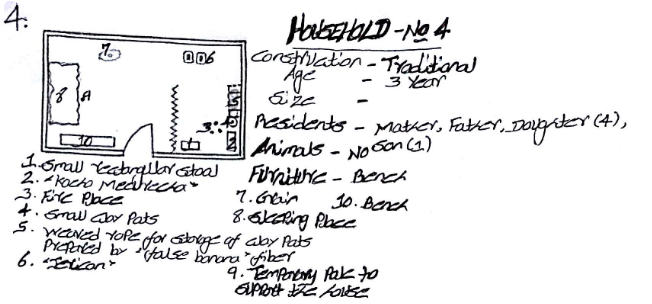 4:
HOUSEHOLD - No 4
Construction - Traditional
Age - 3 Year
Size -
Residents - Mother, Father, Daughter (4),
Son (1)
Animals - No
Furniture - Bench
1. Small rectangular stool
2. "Kocho Medhecha"
3. Fire Place
4. Small Clay Pots
5. Weaved rope for storage of Clay Pots
Prepared by "false banana" fiber
6. "Jerican"
7. Grain
8. Sleeping Place
9. Temporary Pole to
support the house
10. Bench
7
6
8
9
3
4
5
10
1
2